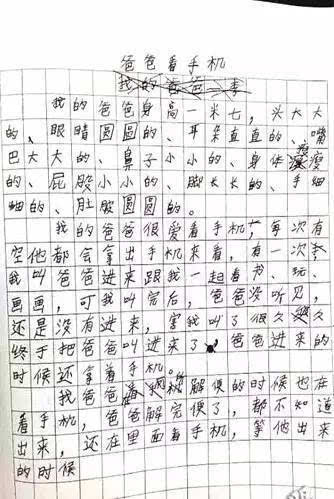 爸爸看手机
我的爸爸身高一米七，头大大
的、眼睛圆圆的、耳朵直直的、嘴
巴大大的、鼻子小小的、身体瘦瘦
的、屁股小小的、脚长长的、手细
细的、肚股圆圆的。
我的爸爸很爱看手机，每次有
空他都会拿出手机来看，有一次
我叫爸爸进来跟我一起看书、玩、
画画，可我叫完后，爸爸没听见，
还是没有进来，害我叫了很久
终于把爸爸叫进来了，爸爸进来的
时候还拿着手机。
我爸爸在解便的时候也在
看手机，爸爸解完便了，都不知道
出来，还在里面看手机，等他出来
的时候